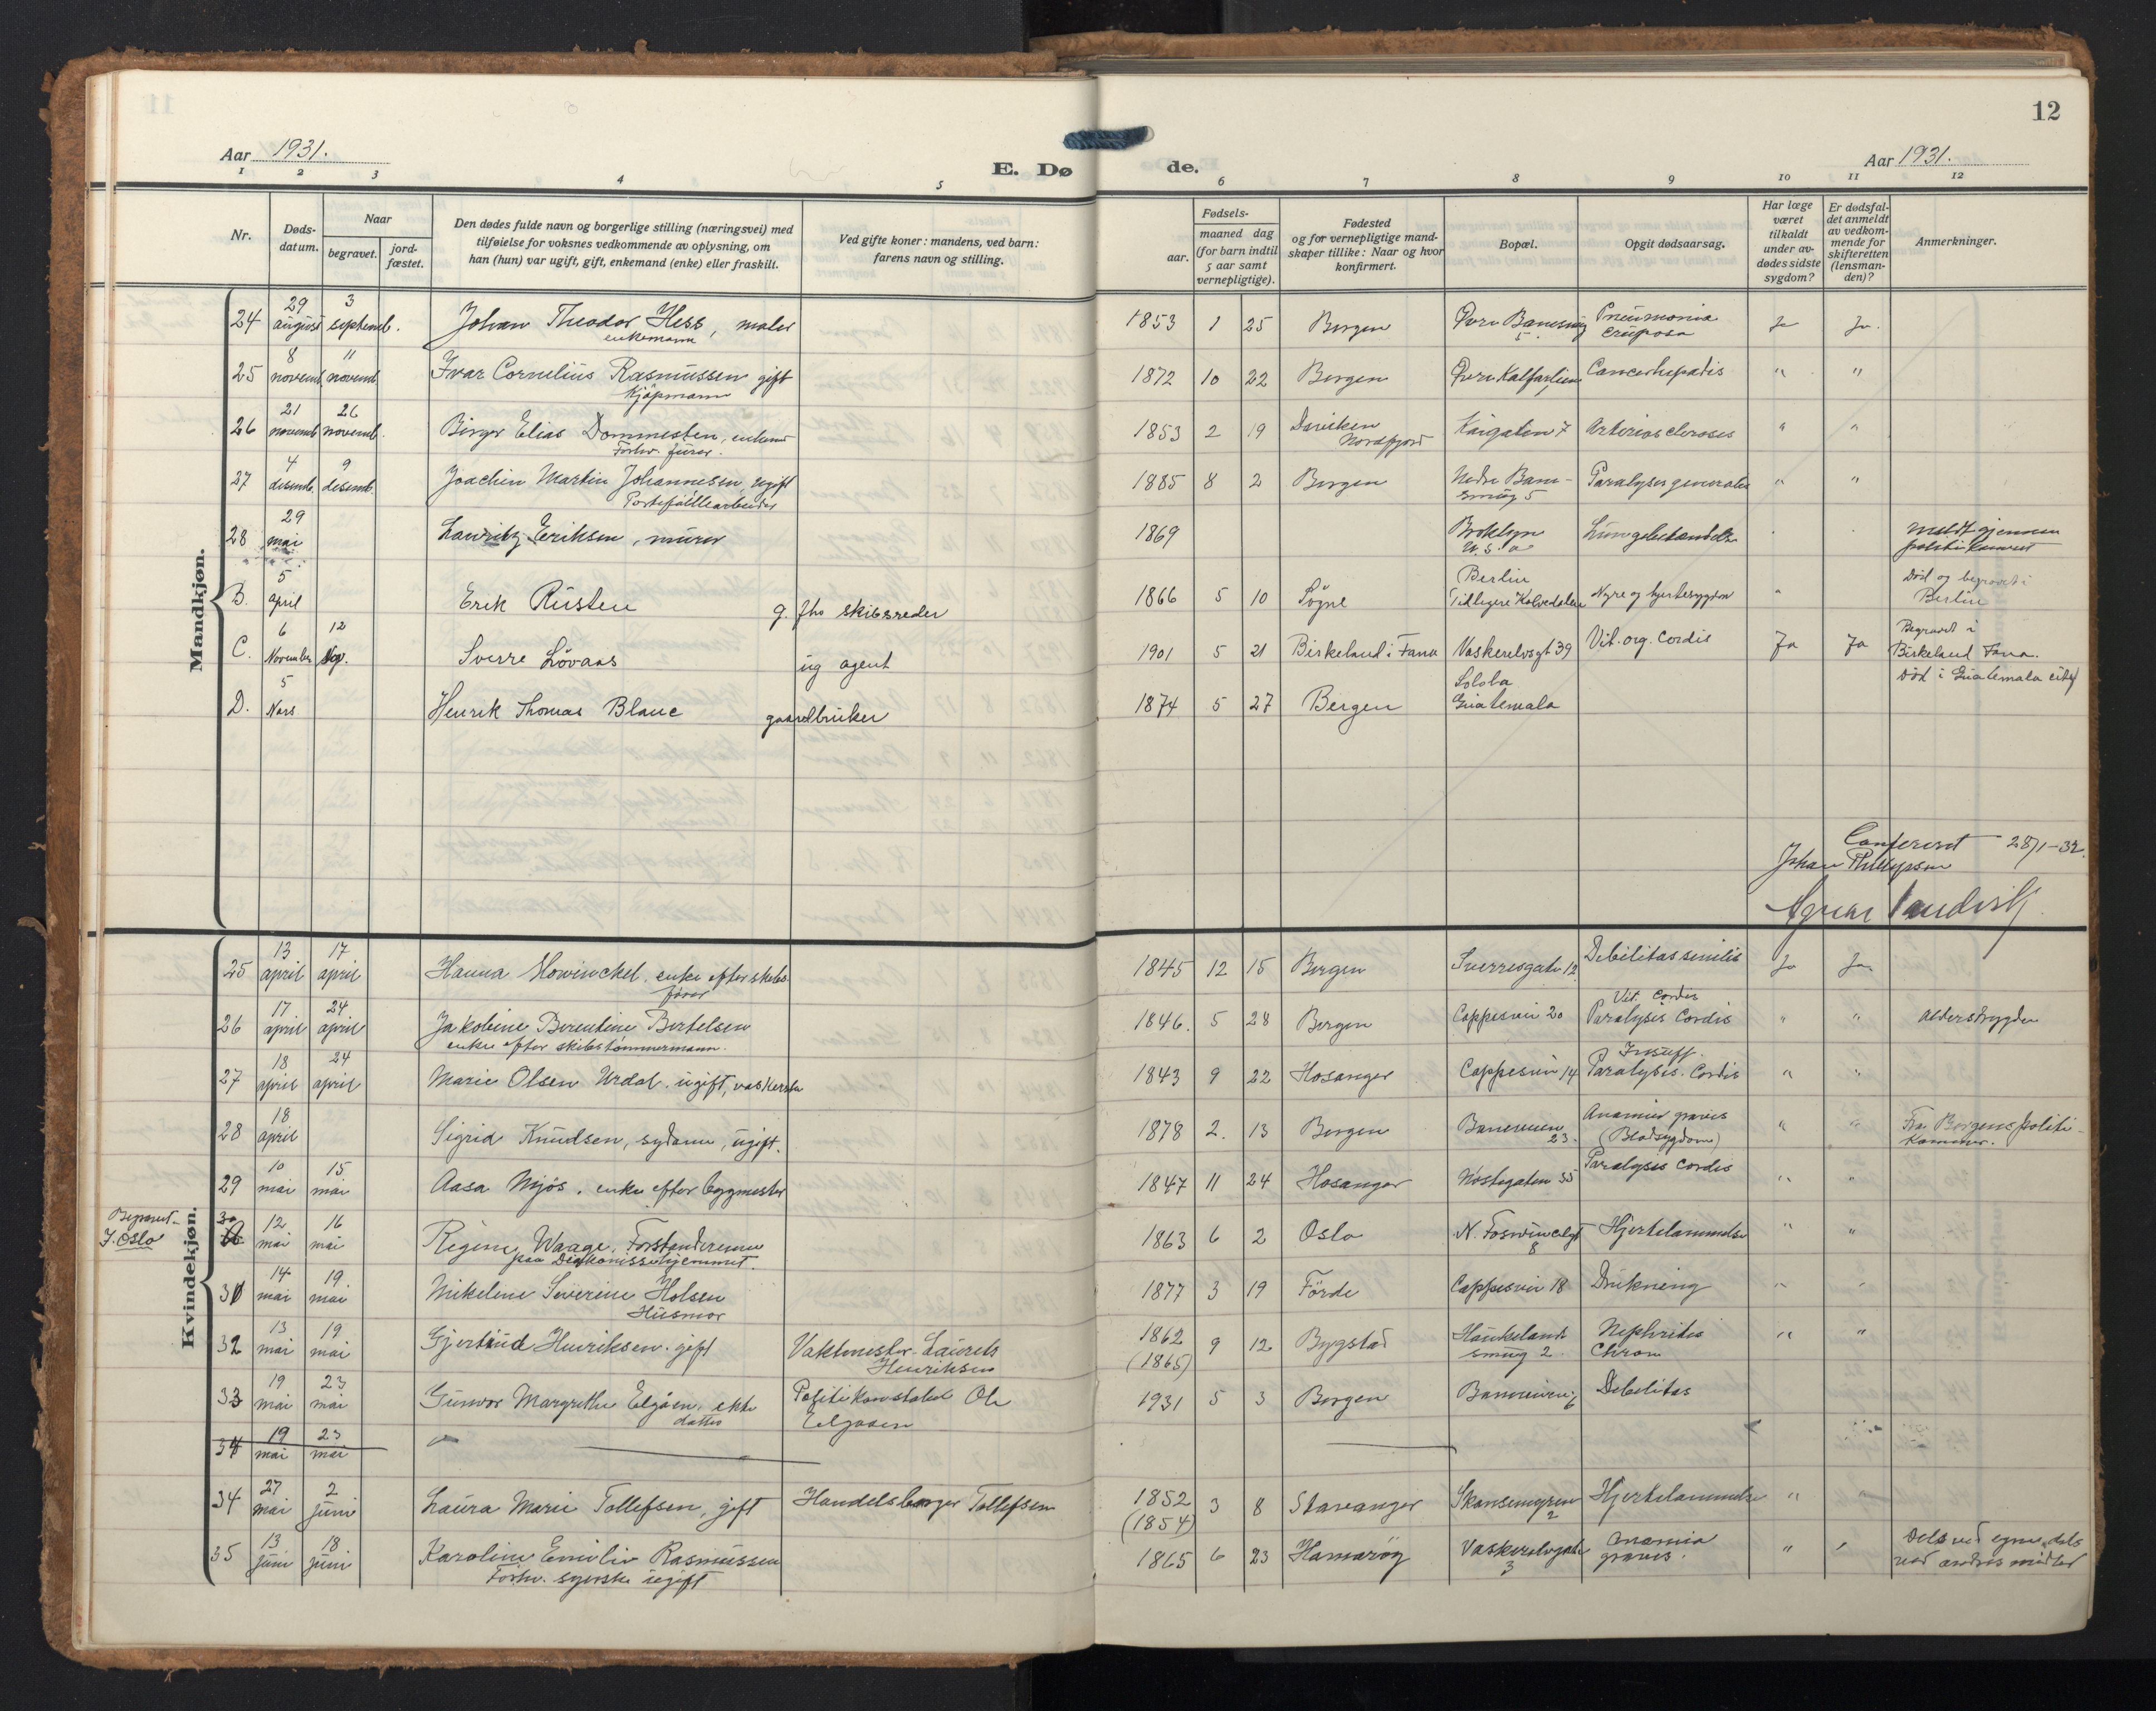 12
Aar 1931.
E. Dø
de.
Aar 1931.
1 2 3 4 5 6 7 8 9 10 11 12
Nr.
Døds-
datum.
Naar
begravet.
jord-
fæstet.
Den dødes fulde navn og borgerlige stilling (næringsvei) med
tilføielse for voksnes vedkommende av oplysning, om
han (hun) var ugift, gift, enkemand (enke) eller fraskilt.
Ved gifte koner: mandens, ved barn:
farens navn og stilling.
Fødsels-
aar.
maaned dag
(for barn indtil
5 aar samt
vernepligtige).
Fødested
og for vernepligtige mand-
skaper tillike: Naar og hvor
konfirmert.
Bopæl.
Opgit dødsaarsag.
Har læge
været
tilkaldt
under av-
dødes sidste
sygdom?
Er dødsfal-
det anmeldt
av vedkom-
mende for
skifteretten
(lensman-
den)?
Anmerkninger.
Mandkjøn.
24 29 august 3 septemb. Johan Theodor Hess, maler 1853 1 25 Bergen Øvre Banesmug Pneumonia Ja Ja.
enkemann 5. cruposa
25 8 novemb. 11 novemb. Ivar Cornelius Rasmussen gift 1872 10 22 Bergen Øvre Kalfarlien Cancer hepatis " "
Kjøpmann
26 21 novemb. 26 novemb. Birger Elias Dommesten, enkem 1853 2 19 Daviken Kaigaten 7 Arteriosclerosis " "
Forhv. furer. Nordfjord
27 4 desemb. 9 desemb. Joachin Martin Johannesen, ugift 1885 8 2 Bergen Nedre Bane- Paralysis generalis " "
Porteføillearbeider smug 5
28 29 mai Lauritz Eriksen, murer 1869 Broklyn Lungebetændelse Meldt gjennem
U.S.a politikamret
B. 5 April Erik Rusten g. fhv skibsreder 1866 5 10 Sögne Berlin Nyre og hjertesygdom " Død og begravet i
Tidligere Kalvedalen Berlin
C. 6 November 12 Nov. Sverre Lövaas ug agent 1901 5 21 Birkeland i Fana Vaskerelvsgt 39 Vit. org. Cordis Ja Ja Begravet i
Birkeland Fana.
D. 5 Mars Henrik Thomas Blanc gaardbruker 1874 5 27 Bergen Solola død i Guatemala city
Guatemala
Confereret 28/1-32.
Johan Phillipsen
Kvindekjøn.
25 13 april 17 april Hanna Mowinckel. enke efter skibs- 1845 12 15 Bergen Sverresgate 12 Debilitas senilis Ja Ja
fører
26 17 april 24 april Jakobine Berentine Bertelsen 1846. 5 28 Bergen Cappesvei 20 Vit. Cordis " " alderstrygden
enke efter skibstømmermann. Paralysis Cordis
27 18 april 24 april Marie Olsen Urdal. ugift, vaskerska 1843 9 22 Hosanger Cappesvei 14 Insuff. " "
Paralysis. Cordis
28 18 april Sigrid Knudsen, sydame, ugift. 1878 2. 13 Bergen Baneveien Anæmia gravis " " Fra Bergens politi-
23. (Blodsygdom) kammer.
29 10 mai 15 mai Aasa Mjøs. enke efter bygmester 1847 11 24 Hosanger Nøstegaten 55 Paralysis Cordis " "
Begravet
I. Oslo
30 12 mai 16 mai Regine Waage. Forstanderinne 1863 6 2 Oslo N. Foswinclsgt Hjertelammelse " "
paa Diakonissehjemmet. 8
31 14 mai 19 mai Mikeline Severine Holsen 1877 3 19 Förde Cappesvei 18 Drukning " "
Husmor
32 13 mai 19 mai Gjertrud Henriksen. gift Vaktmester Laurits 1862 9 12 Bygstad Haukelands- Nephritis " "
Henriksen (1865) smug 2. Chron
33 19 mai 23 mai Gunvor Margrethe Elgåen. ekte Politikonstabel Ole 1931 5 3 Bergen Baneveien 6 Debilitas
datter Elgaaen
34 19 mai 23 mai "
34 27 mai 2 juni Laura Marie Tollefsen, gift Handelsborger Tollefsen 1852 3 8 Stavanger Skansemyren Hjertelammelse " "
(1854) 2
35 13 juni 18 juni Karoline Emilie Rasmussen 1865 6 23 Hamarøy Vaskerelvgate Anæmia " " Dels ved egne, dels
Forhv. syerske ugift 3 gravis. ved andres midler